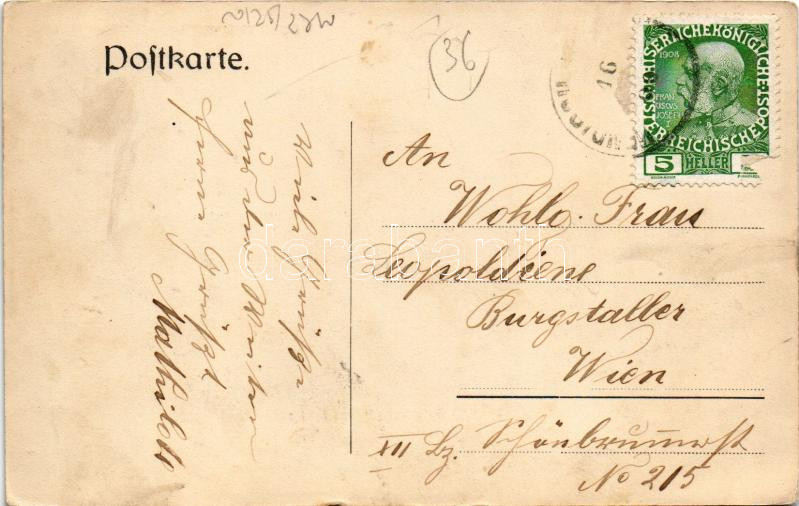 Postkarte.
36
KAISERLICHE KÖNIGLICHE
ÖSTERREICHISCHE POST
1908
FRAN
CISCUS
JOSEF I
5 HELLER
16
An
Wohlg. Frau
Leopoldiene
Burgstaller
Wien
XII Bz. Schönbrunnerst
No 215
Viele Grüße
und
Mathilde
darabanth